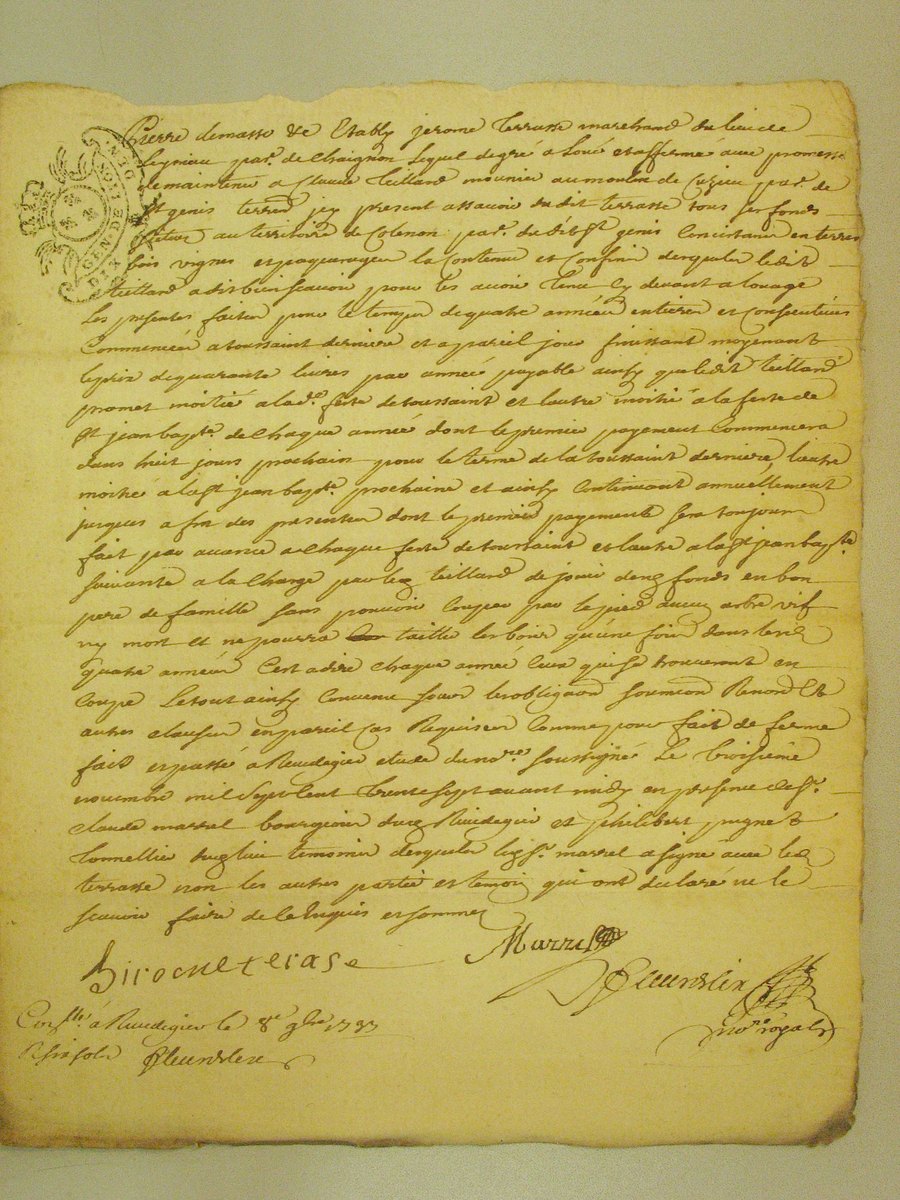 GEN. DE LION
DIX DEN
Pierre demasse &c Etably jerome terrasse marchand du lieu de
par.e de Chaignon lequel de gré a loué et affermé avec promesse
de maintenir a Claude teillard mounier au moulin de Cuzieu par.e de
St genis terrenoire present assavoir du dit terrasse tous ses fonds
situés au territoire de Colenon par.e du dit St genis Concistant en terres
bois vignes et paquerages la Contenue et Confins desquels ledit
teillard a dit bien scavoir pour les avoir tenu cy devant a louage
Les presentes faites pour le temps de quatre années entieres et Consecutives
Commencées a toussaint derniere et a pareil jour finissant moyenant
le prix de quarante livres par année payable ainsy que ledit teillard
promet moitié a lad.e feste de toussaint et lautre moitié a la feste de
St jean bapt.e de Chaque année dont le premier payement Commencera
dans huit jours prochain pour le terme de la toussaint derniere lautre
moitié a la St jean bapt.e prochaine et ainsy Continuant annuellement
jusques a fin des presentes dont le premier payement sera toujours
fait par avance a Chaque feste de toussaint et lautre a la St jean bapt.e
suivante a la Charge par led teillard de jouir desd fonds en bon
pere de famille sans pouvoir Couper par le pied aucun arbre vif
ny mort et ne pourra tailler les bois qu'une fois dans lesd
quatre années C'est a dire Chaque année Ceux qui se trouveront en
Coupe Le tout ainsy Convenu sous les obligaons soumions Renons Et
autres clauses en pareil Cas Requises Comme pour fait de ferme
fait et passé a Rivedegier etude du no.re soussigné Le troisieme
novembre mil Sept Cent trente sept avant midy en presence de Sr
Claude marrel bourgeois dud Rivedegier et philibert
tonnellier dud lieu temoins desquels led Sr marrel a signé avec led
terrasse non les autres partie et temoin qui ont declaré ne le
scavoir faire de ce Enquis et sommés
terase
Marrel
no.re royal
Con.llé a Rivedegier le 8e 9bre 1737